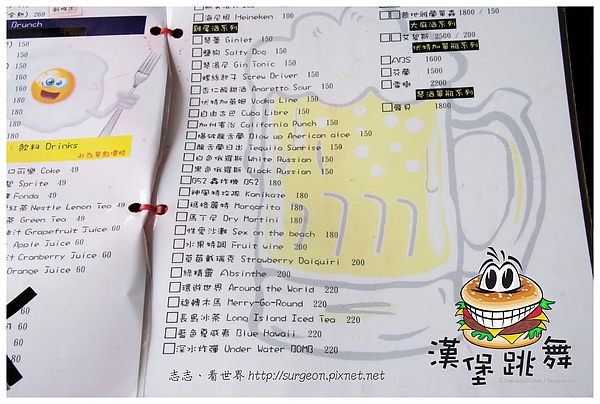 Brunch
飲料 Drinks
口可樂 Coke 49
Sprite 49
Fonda 49
紅茶 Nestle Lemon Tea 49
茶 Green Tea 49
Grapefruit Juice 60
Apple Juice 60
Cranberry Juice 60
Orange Juice 60
海尼根 Heineken 100
雞尾酒系列
琴蕾 Ginlet 150
鹽狗 Salty Dog 150
琴湯尼 Gin Tonic 150
螺絲起子 Screw Driver 150
杏仁酸甜酒 Amaretto Sour 150
伏特加萊姆 Vodka Lime 150
自由古巴 Cuba Libre 150
加州賓治 California Punch 150
爆破龍舌蘭 Blow up American aloe 150
龍舌蘭日出 Tequila Sunrise 150
白色俄羅斯 White Russian 150
黑色俄羅斯 Black Russian 150
B52 轟炸機 B52 180
神風特攻隊 Kamikaze 180
瑪格麗特 Margarita 180
馬丁尼 Dry Martini 180
性愛沙灘 Sex on the beach 180
水果特調 Fruit wine 200
草莓戴瑞克 Strawberry Daiquiri 200
綠精靈 Absinthe 200
環遊世界 Around the World 220
旋轉木馬 Merry-Go-Round 220
長島冰茶 Long Island Iced Tea 220
藍色夏威夷 Blue Hawaii 220
深水炸彈 Under Water BOMB 220
1800 / 150
艾碧斯 2500 / 200
伏特加單瓶系列
1600
芬蘭 1500
雪樹 2200
琴酒單瓶系列
1800
漢堡跳舞
志志、看世界 http://surgeon.pixnet.net